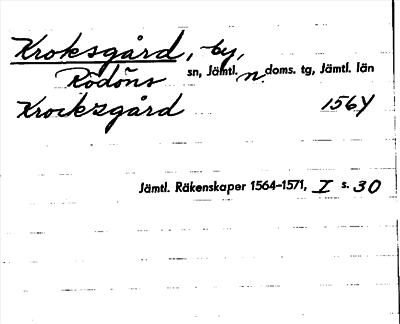 Kroksgård, by,
Rödöns sn, Jämtl. n. doms. tg, Jämtl. län
Krockzgård 1564
Jämtl. Räkenskaper 1564-1571, I s. 30